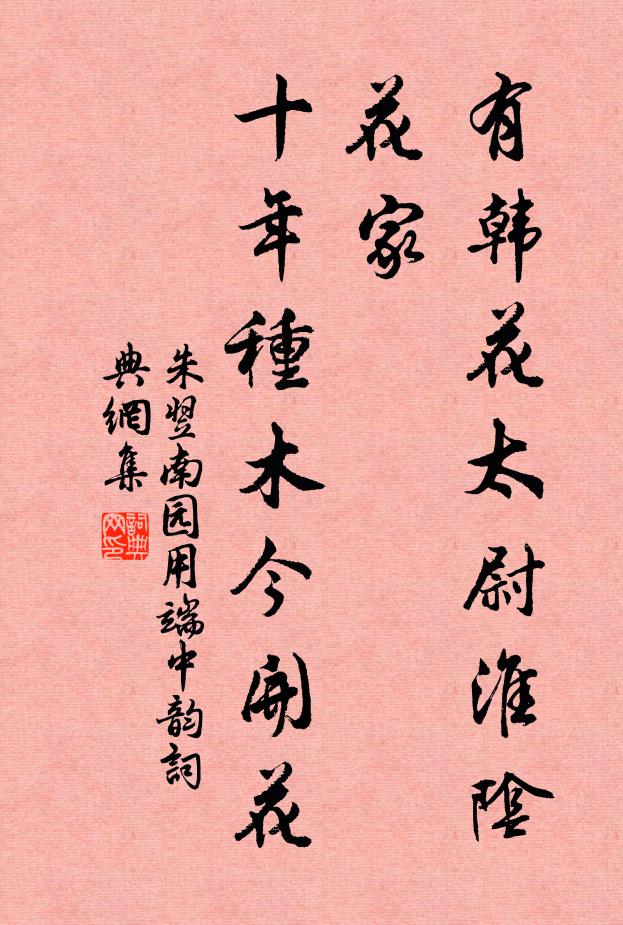 有韩花太尉淮陰
花家
十年種木今開花
朱翌南园用端中韵詞
典網集
詞典网印